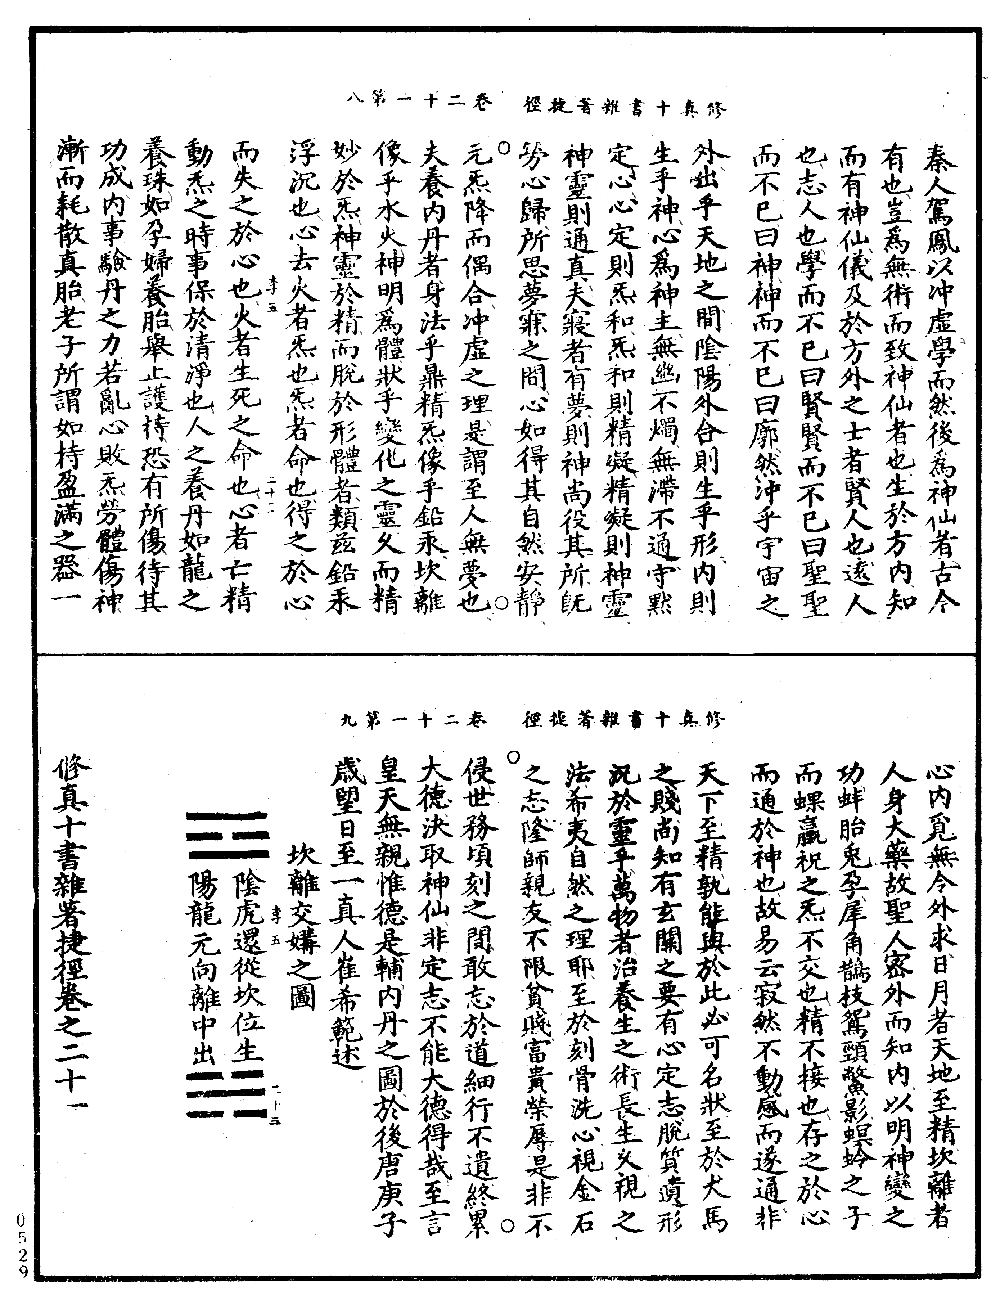 修真十書雜著捷徑　卷二十一第八
秦人駕鳳以冲虛學而然後爲神仙者古今
有也豈爲無術而致神仙者也生於方內知
而有神仙儀及於方外之士者賢人也遠人
也志人也學而不已曰賢賢而不已曰聖聖
而不已曰神神而不已曰廓然沖乎宇宙之
外出乎天地之間陰陽外合則生乎形內則
生乎神心爲神主無幽不燭無滯不通守默
定心心定則炁和炁和則精凝精凝則神靈
神靈則通真夫寢者有夢則神尚役其所旣
勞心歸所思夢寐之問心如得其自然安靜
元炁降而偶合冲虛之理是謂至人無夢也
夫養內丹者身法乎鼎精炁像乎鉛汞坎離
像乎水火神明爲體狀乎變化之靈父而精
妙於炁神靈於精而脫於形體者類兹鉛汞
浮沉也心去火者炁也炁者命也得之於心
而失之於心也火者生死之命也心者亡精
李五
二十二
動炁之時事保於清淨也人之養丹如龍之
養珠如孕婦養胎舉止護持恐有所傷待其
功成內事驗丹之力若亂心敗炁勞體傷神
漸而耗散真胎老子所謂如持盈滿之器一
修真十書雜著捷徑　卷二十一第九
心內覓無今外求日月者天地至精坎離者
人身大藥故聖人密外而知內以明神變之
功蚌胎兎孕犀角鵲枝鴛頸鱉影螟蛉之子
而蜾蠃祝之炁不交也精不接也存之於心
而通於神也故易云寂然不動感而遂通非
天下至精孰能與於此必可名狀至於犬馬
之賤尚知有玄關之要有心定志脫質遺形
況於靈乎萬物者治養生之術長生久視之
法希夷自然之理耶至於刻骨洗心視金石
之志隆師親友不限貧賤富貴榮辱是非不
侵世務頃刻之間敢忘於道細行不遺終累
大德決取神仙非定志不能大德得哉至言
皇天無親惟德是輔內丹之圖於後唐庚子
歲朢日至一真人崔希範述
坎離交媾之圖
陰虎還從坎位生
李五
二十三
陽龍元向離中出
修真十書雜著捷徑卷之二十一
0529